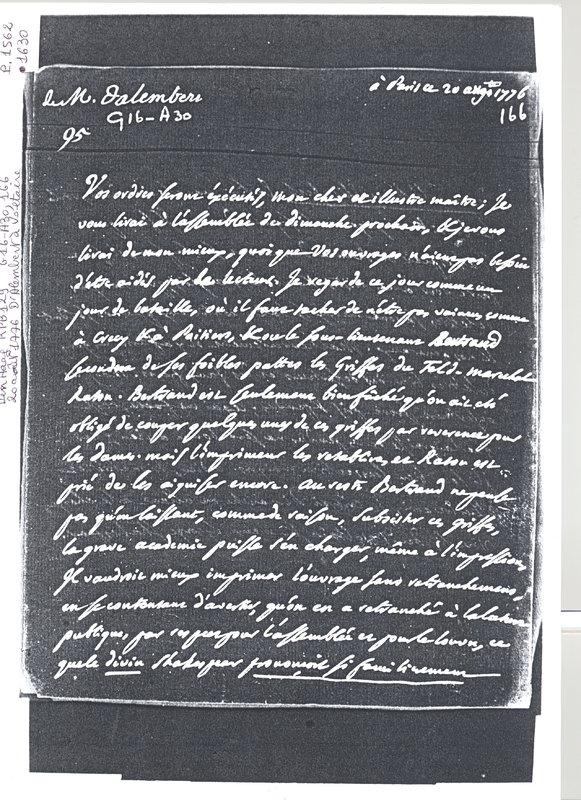 P. 1562
1630
G16-A30, 166
20 août 1776 D'Alembert à Voltaire
à Paris ce 20 augte 1776
de M. Dalembert
G16-A30
166
95
Vos ordres seront éxécutés, mon cher et illustre maître; Je
vous lirai à l'assemblée de dimanche prochain, & je vous
lirai de mon mieux, quoique vos ouvrages n'aient pas besoin
d'être aidés par le lecteur. Je regarde ce jour comme un
jour de bataille, où il faut tacher de n'être pas vaincus comme
à Crecy & à Poitiers, & où le sous lieutenant Bertrand
secondra de ses foibles pattes les Griffes du Feld-marechal
Raton. Bertrand est seulement bien fâché qu'on ait été
obligé de couper quelques unes de ces griffes par reverence pour
les dames. mais l'imprimeur les rétablira, et Raton est
prié de les aiguiser encore. au reste Bertrand ne pense
pas qu'en laissant, comme de raison, subsister ces griffes,
la grave academie puisse s'en charger, même à l'impression,
Il vaudroit mieux imprimer l'ouvrage sans retranchemens,
en se contentant d'avertir, qu'on en a retranché à la lecture
publique, par respect pour l'assemblée et pour le louvre, ce
que le divin Shakespear prononçoit si familierement